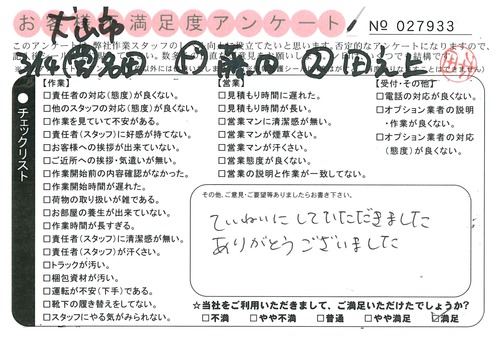 お客様満足度アンケート
No 027933
犬山市
チェックリスト
【作業】
□責任者の対応(態度)が良くない。
□他のスタッフの対応(態度)が良くない。
□作業を見ていて不安がある。
□責任者(スタッフ)に好感が持てない。
□お客様への挨拶が出来ていない。
□ご近所への挨拶・気遣いが無い。
□作業開始前の内容確認がなかった。
□作業開始時間が遅れた。
□荷物の取り扱いが雑である。
□お部屋の養生が出来ていない。
□作業時間が長すぎる。
□責任者(スタッフ)に清潔感が無い。
□責任者(スタッフ)が汗くさい。
□トラックが汚い。
□梱包資材が汚い。
□運転が不安(下手)である。
□靴下の履き替えをしてない。
□スタッフにやる気がみられない。
【営業】
□見積もり時間に遅れた。
□見積もり時間が長い。
□営業マンに清潔感が無い。
□営業マンが煙草くさい。
□営業マンが汗くさい。
□営業態度が良くない。
□営業の説明と作業が一致してない。
【受付・その他】
□電話の対応が良くない。
□オプション業者の説明
・作業が良くない。
□オプション業者の対応
(態度)が良くない。
その他、ご意見・ご要望等ありましたらお書き下さい。
ていねいにしていただきました
ありがとうございました
☆当社をご利用いただきまして、ご満足いただけたでしょうか?
□不満 □やや不満 □普通 □やや満足 □満足